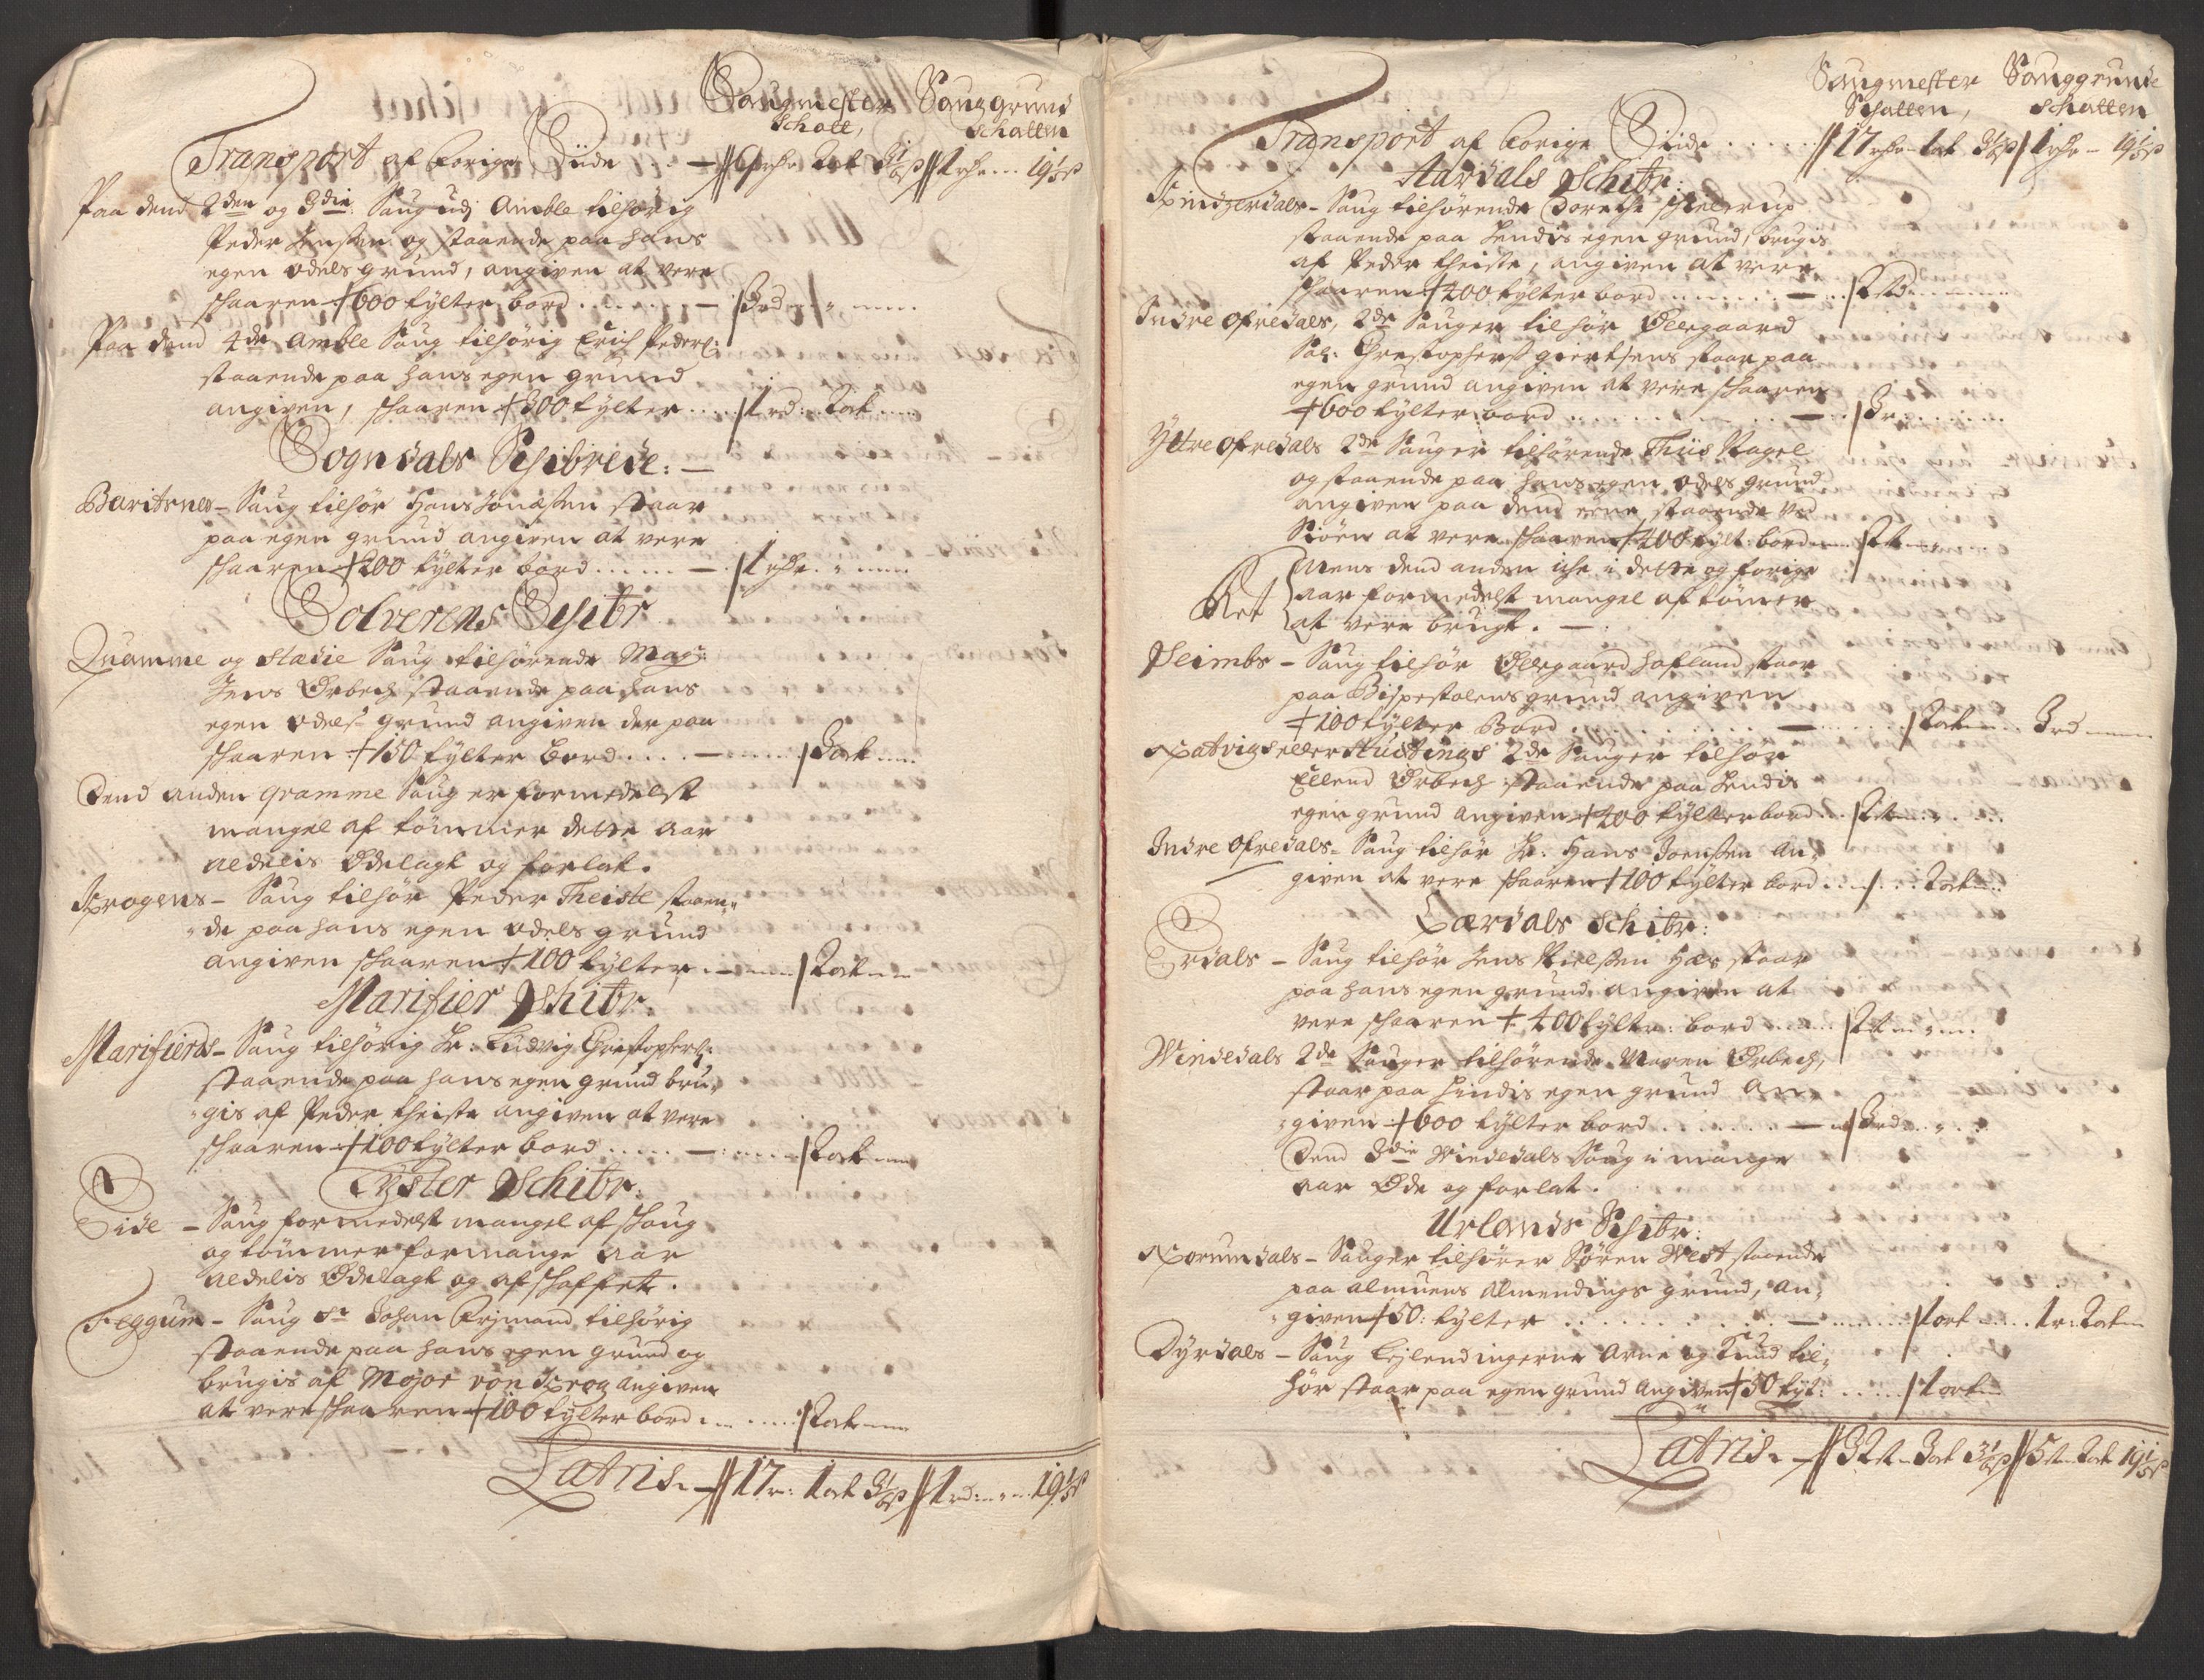 Saugmester Sauggrund
Schatt, Schatten
Transport af forige Siide
Paa dend 2den og 3die Saug udj Amble tilhørig
Peder Jenssen og staaende paa hans
egen odels grund, angiven at vere
skaaren + 600 tylter bord
Paa dend 4de Amble Saug tilhørig Erich Peders:
staaende paa hans egen grund
angiven, skaaren + 300 tylter
Sogndals Schibrede: —
Baritsnes - Saug tilhør Hans Jonæssen staar
paa egen grund angiven at vere
skaaren + 200 tylter bord
Solverens Schibr
Quamme og Stadie Saug tilhørende Mag:
Jens Ørbech staaende paa hans
egen odels grund angiven der paa
skaaren + 150 tylter bord
Dend anden qvamme Saug er formedelst
mangel af tømmer dette aar
aldelis Ødelagt og forlat.
Krogens - Saug tilhør Peder Theiste staaen-
de paa hans egen odels grund
angiven skaaren + 100 tylter
Marifier Schibr:
Marifierds - Saug tilhørig Hr: Ludvig Christophers:
staaende paa hans egen grund bru-
gis af Peder theiste angiven at vere
skaaren + 100 tylter bord
Lyster Schibr:
Eide - Saug formedelst mangel af skaug
og tømmer for mange aar
aldelis Ødelagt og afskaffet.
Feggum - Saug Sr Johan tilhørig
staaende paa hans egen grund og
brugis af Major von Krog angiven
at vere skaaren + 100 tylter bord
Latris 17 r: 1 ort 3 1/6 s 1 rd: 19 1/5 s
Saugmester Sauggrunde
Schatten, Schatten
Transport af forige Siide
Aardals Schibr:
Saug tilhørende Dorethe
staaende paa hendis egen grund, brugis
af Peder theiste, angiven at vere
skaaren + 400 tylter bord
Indre Ofredals, 2de Sauger tilhør Ollegaard
Sal: Christophers giertsens staar paa
egen grund angiven at vere skaaren
+ 600 tylter bord
Yttre Ofredals 2de Sauger tilhørende Thiis Nagel
og staaende paa hans egen odels grund
angiven paa dend eene staaende ved
Siøen at vere skaaren + 400 tylt: bord
Mens dend anden iche i dette og forige
aar formedelst mangel af tømer
at vere brugt. —
Seimbs - Saug tilhør Ollegaard Hafland staar
paa Bispestolens grund angiven
+ 100 tylter Bord
Natvigs eller Hestings 2de Sauger tilhør
Ellend Ørbech staaende paa hendis
egen grund angiven + 400 tylter bord
Indre Ofredals - Saug tilhør Hr: Hans Joenssen an-
given at vere skaaren + 100 tylter bord
Lærdals Schibr:
Erdals - Saug tilhør Jens Nielssen Hæs staar
paa hans egen grund angiven at
vere skaaren + 400 tylter: bord
Windedals 2de Sauger tilhørende Maren Ørbech,
staar paa hindis egen grund an-
given + 600 tylter bord
Dend 3die Windedals Saug i mange
aar Øde og forlat.
Urlands Schibr:
Sauger tilhører Søren West staaende
paa almuens Almendings grund, an-
given + 50: tylter
Dyrdals - Saug Lejlendingerne Arne og Knud til-
hør staar paa egen grund angiven + 50 tyt:
Latris 32 rt 3 ort 3 1/6 s 5 rt 2 ort 19 1/5 s